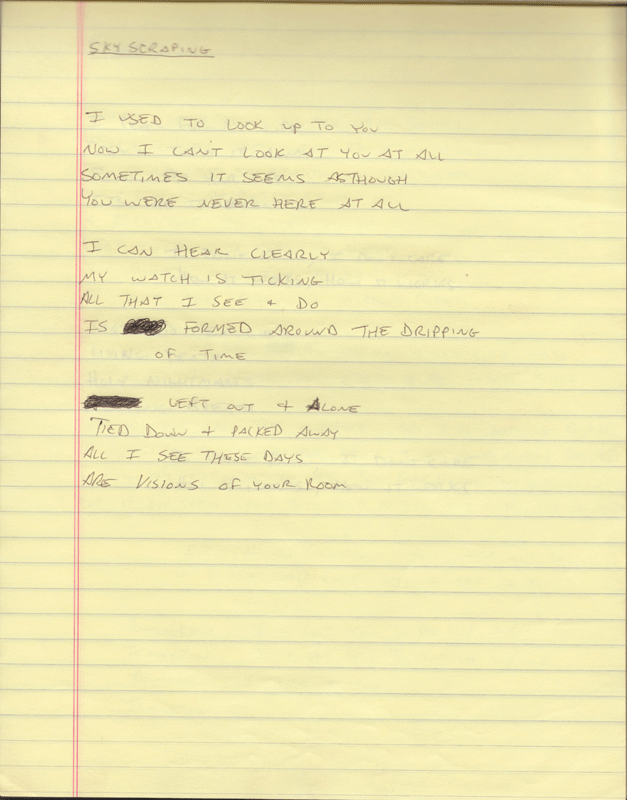 SKY SCRAPING
I USED TO LOOK UP TO YOU
NOW I CAN'T LOOK AT YOU AT ALL
SOMETIMES IT SEEMS ASTHOUGH
YOU WERE NEVER HERE AT ALL
I CAN HEAR CLEARLY
MY WATCH IS TICKING
ALL THAT I SEE & DO
IS FORMED AROUND THE DRIPPING
OF TIME
LEFT OUT & ALONE
TIED DOWN & PACKED AWAY
ALL I SEE THESE DAYS
ARE VISIONS OF YOUR ROOM